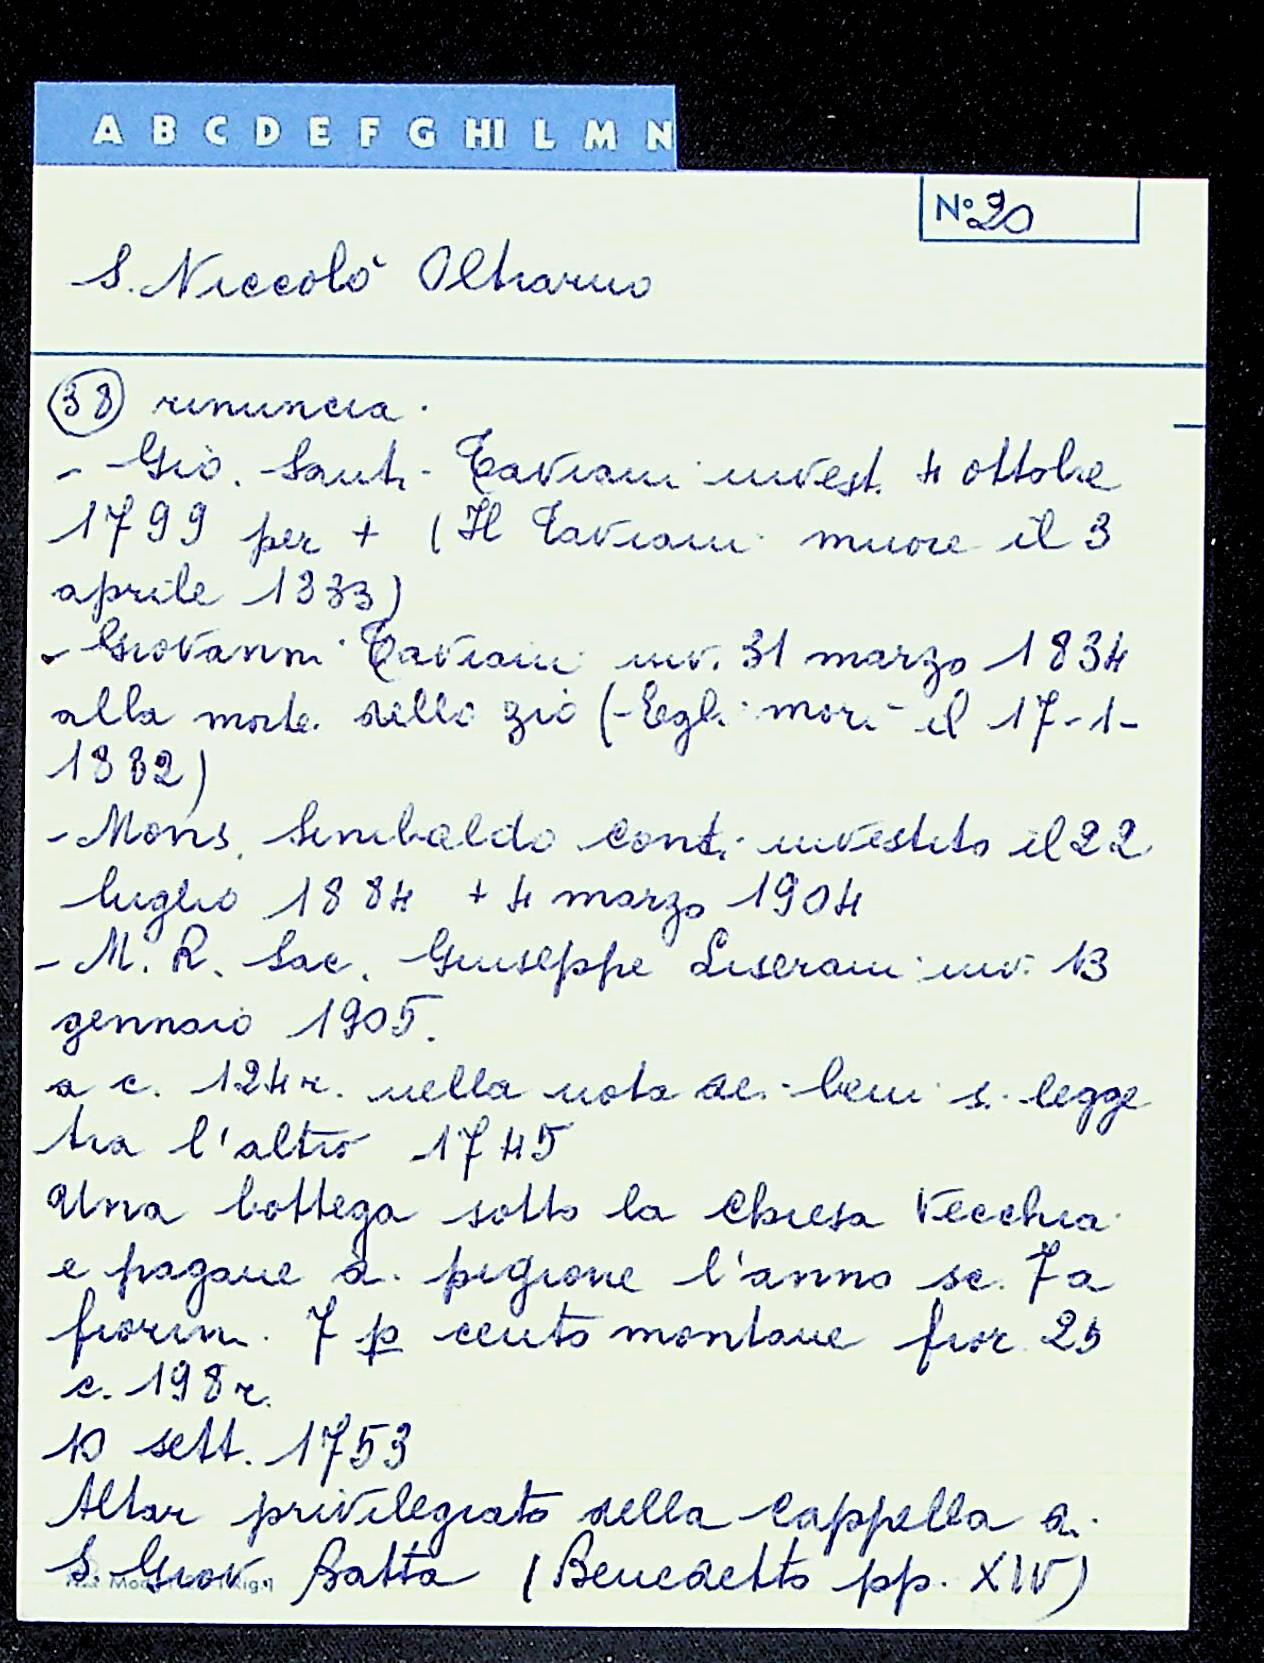 A B C D E F G HI L M N
N° 20
S. Niccolò Oltrarno
(38) rinuncia.
- Gio. Santi Taviani invest. 4 ottobre
1799 per + (Il Taviani muore il 3
aprile 1833)
- Giovanni Taviani inv. 31 marzo 1834
alla morte dello zio (-Egli morì il 17-1-
1882)
- Mons. Sinibaldo Conti investito il 22
luglio 1884 + 4 marzo 1904
- M. R. Sac. Giuseppe Liserani inv. 13
gennaio 1905.
a c. 124r. nella nota dei beni si legge
tra l'altro 1745
Una bottega sotto la chiesa vecchia
e pagane di pigione l'anno sc. 7 a
fiorini 7 p cento montane fior 25
c. 198r.
10 sett. 1753
Altar privilegiato della Cappella di
S. Giov Batta (Benedetto pp. XIV)